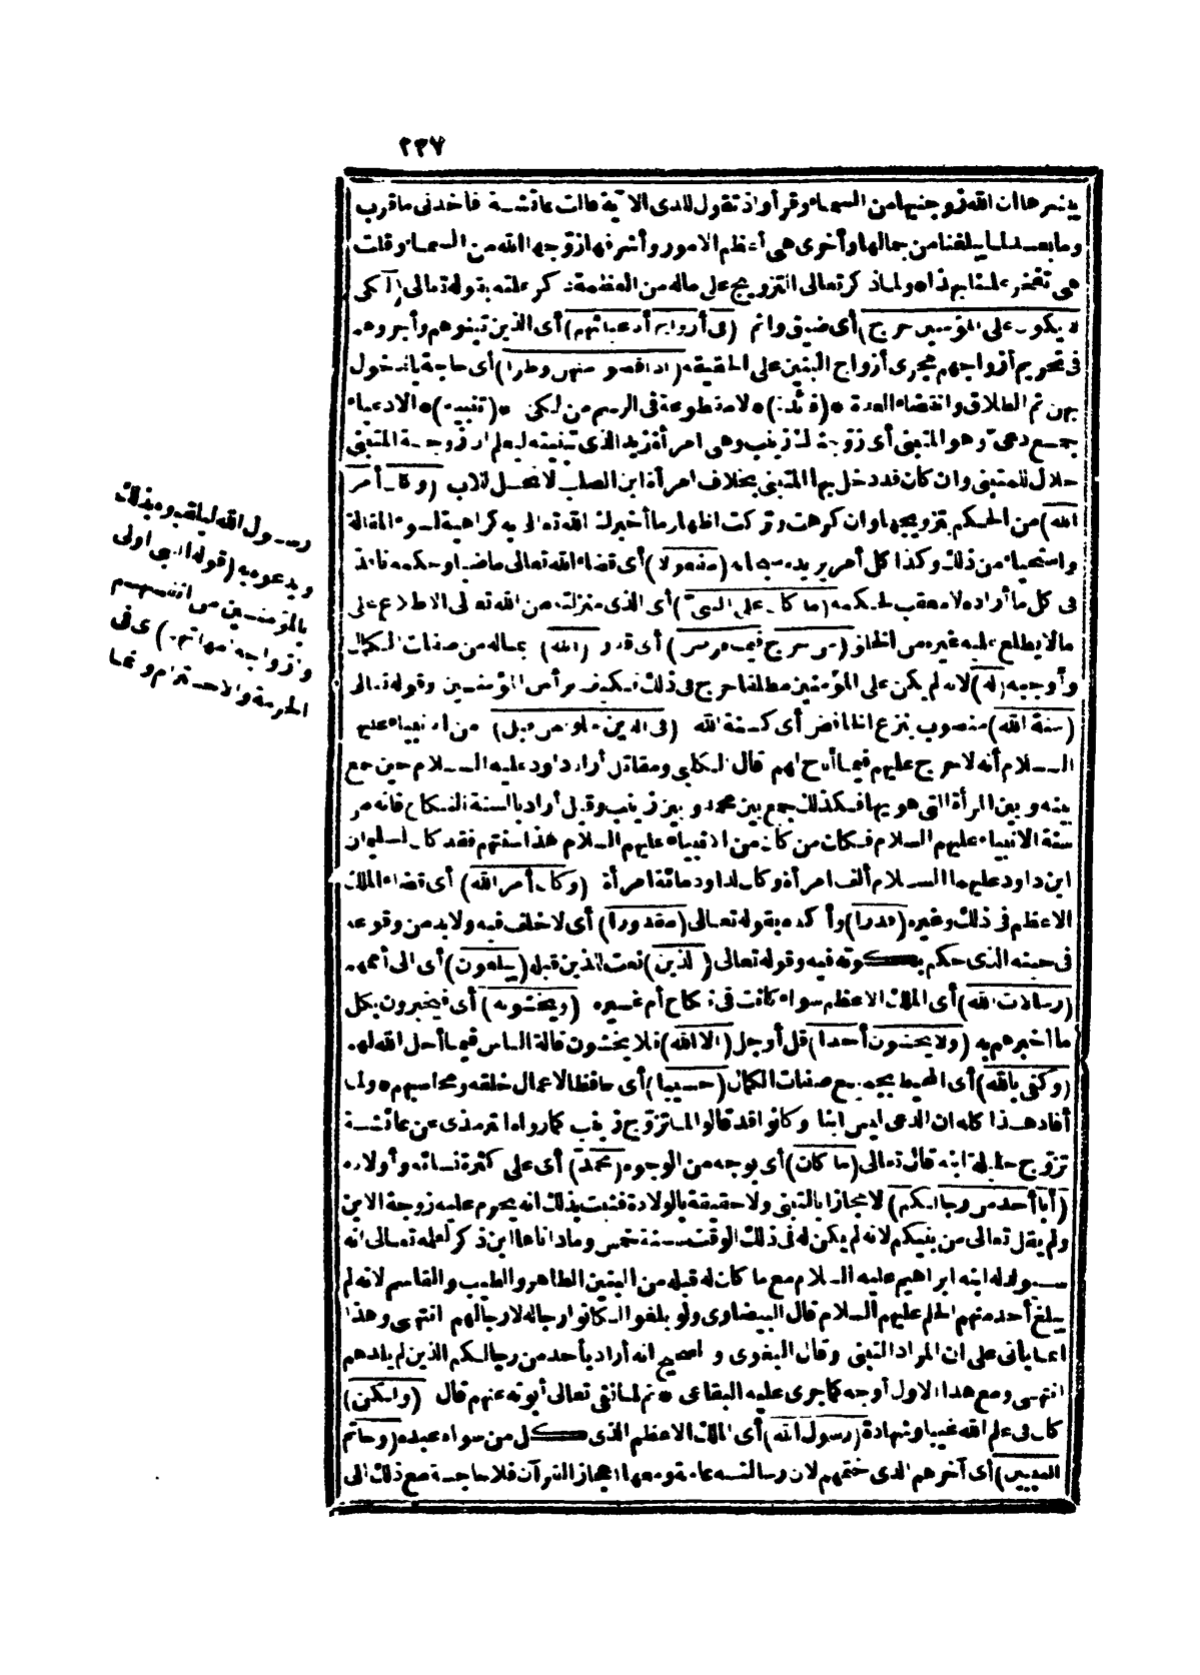 ٢٣٧
يبشرها ان الله زوجنيها من السماء وقرأ واذ تقول للذى الآية قالت عائشة فاخذنى ما قرب
وما بعد لما يبلغنا من جمالها وأخرى هى أعظم الامور وأشرفها زوجها الله من السماء وقلت
هى تفخر علينا بهذا ولما ذكر تعالى التزويج على ماله من العظمة ذكر علته بقوله تعالى (لكى
لا يكون على المؤمنين حرج) أى ضيق واثم (فى أزواج أدعيائهم) أى الذين تبنوهم وأجروهم
فى تحريم أزواجهم مجرى أزواج البنين على الحقيقة (اذا قضوا منهن وطرا) أى حاجة بالدخول
بهن ثم الطلاق وانقضاء العدة * (فائدة) * لا مقطوعة فى الرسم من لكى * (تنبيه) * الادعياء
جمع دعى وهو المتبنى أى زوجة لك زينب وهى امرأة زيد الذى تبنيته ليعلم ان زوجة المتبنى
حلال للمتبنى وان كان قد دخل بها المتبنى بخلاف امرأة ابن الصلب لا تحل للاب (وكان أمر
الله) من الحكم بتزويجها وان كرهت وتركت اظهار ما أخبرك الله تعالى به كراهية لسوء المقالة
واستحياء من ذلك وكذا كل أمر يريده سبحانه (مفعولا) أى قضاء الله تعالى ماضيا وحكمه نافذ
فى كل ما أراده لا معقب لحكمه (ما كان على النبى) أى الذى منزلته من الله تعالى الاطلاع على
ما لا يطلع عليه غيره من الخلق (من حرج فيما فرض) أى قدر (الله) بماله من صفات الكمال
وأوجبه (له) لانه لم يكن على المؤمنين مطلقا حرج فى ذلك فكيف برأس المؤمنين وقوله تعالى
(سنة الله) منصوب بنزع الخافض أى كسنة الله (فى الذين خلوا من قبل) من الانبياء عليهم
السلام أنه لا حرج عليهم فيما أباح لهم قال الكلبى ومقاتل أراد داود عليه السلام حين جمع
بينه وبين المرأة التى هويها فكذلك جمع بين محمد وبين زينب وقيل أراد بالسنة النكاح فانه من
سنة الانبياء عليهم السلام فكان من كان من الانبياء عليهم السلام هذا سنتهم فقد كان لسليمان
ابن داود عليهما السلام ألف امرأة وكان لداود مائة امرأة (وكان أمر الله) أى قضاء الملك
الاعظم فى ذلك وغيره (قدرا) وأكده بقوله تعالى (مقدورا) أى لا خلف فيه ولا بد من وقوعه
فى حينه الذى حكم بكونه فيه وقوله تعالى (الذين) نعت للذين قبله (يبلغون) أى الى أممهم
(رسالات الله) أى الملك الاعظم سواء كانت فى نكاح أم غيره (ويخشونه) أى فيخبرون بكل
ما أخبرهم به (ولا يخشون أحدا) قل أو جل (الا الله) فلا يخشون قالة الناس فيما أحل الله لهم
(وكفى بالله) أى المحيط بجميع صفات الكمال (حسيبا) أى حافظا لاعمال خلقه ومحاسبهم * ولما
أفاد هذا كله ان الدعى ليس ابنا وكانوا قد قالوا لما تزوج زينب كما رواه الترمذى عن عائشة
تزوج حليلة ابنه قال تعالى (ما كان) أى بوجه من الوجوه (محمد) أى على كثرة نسائه وأولاده
(أبا أحد من رجالكم) لا مجازا بالتبنى ولا حقيقة بالولادة فثبت بذلك انه يحرم عليه زوجة الابن
ولم يقل تعالى من بنيكم لانه لم يكن له فى ذلك الوقت سنة خمس وما داناها ابن ذكر لعلمه تعالى انه
سيولد له ابنه ابراهيم عليه السلام مع ما كان له قبله من البنين الطاهر والطيب والقاسم لانه لم
يبلغ أحد منهم الحلم عليهم السلام قال البيضاوى ولو بلغوا لكانوا رجاله لا رجالهم انتهى وهذا
انما يأتى على ان المراد التبنى وقال البغوى والصحيح انه أراد بأحد من رجالكم الذين لم يلدهم
انتهى ومع هذا الاول أوجه كما جرى عليه البقاعى * ثم لما نفى تعالى أبوته عنهم قال (ولكن)
كان فى علم الله غيبا وشهادة (رسول الله) أى الملك الاعظم الذى كل من سواه عبده (وخاتم
النبيين) أى آخرهم الذى ختمهم لان رسالته عامة ومعها اعجاز القرآن فلا حاجة مع ذلك الى
رسول الله ليلقبوه بذلك
ويدعوه به (قوله النبى اولى
بالمؤمنين من انفسهم
وازواجه امهاتهم) اى فى
الحرمة والاحترام وانما